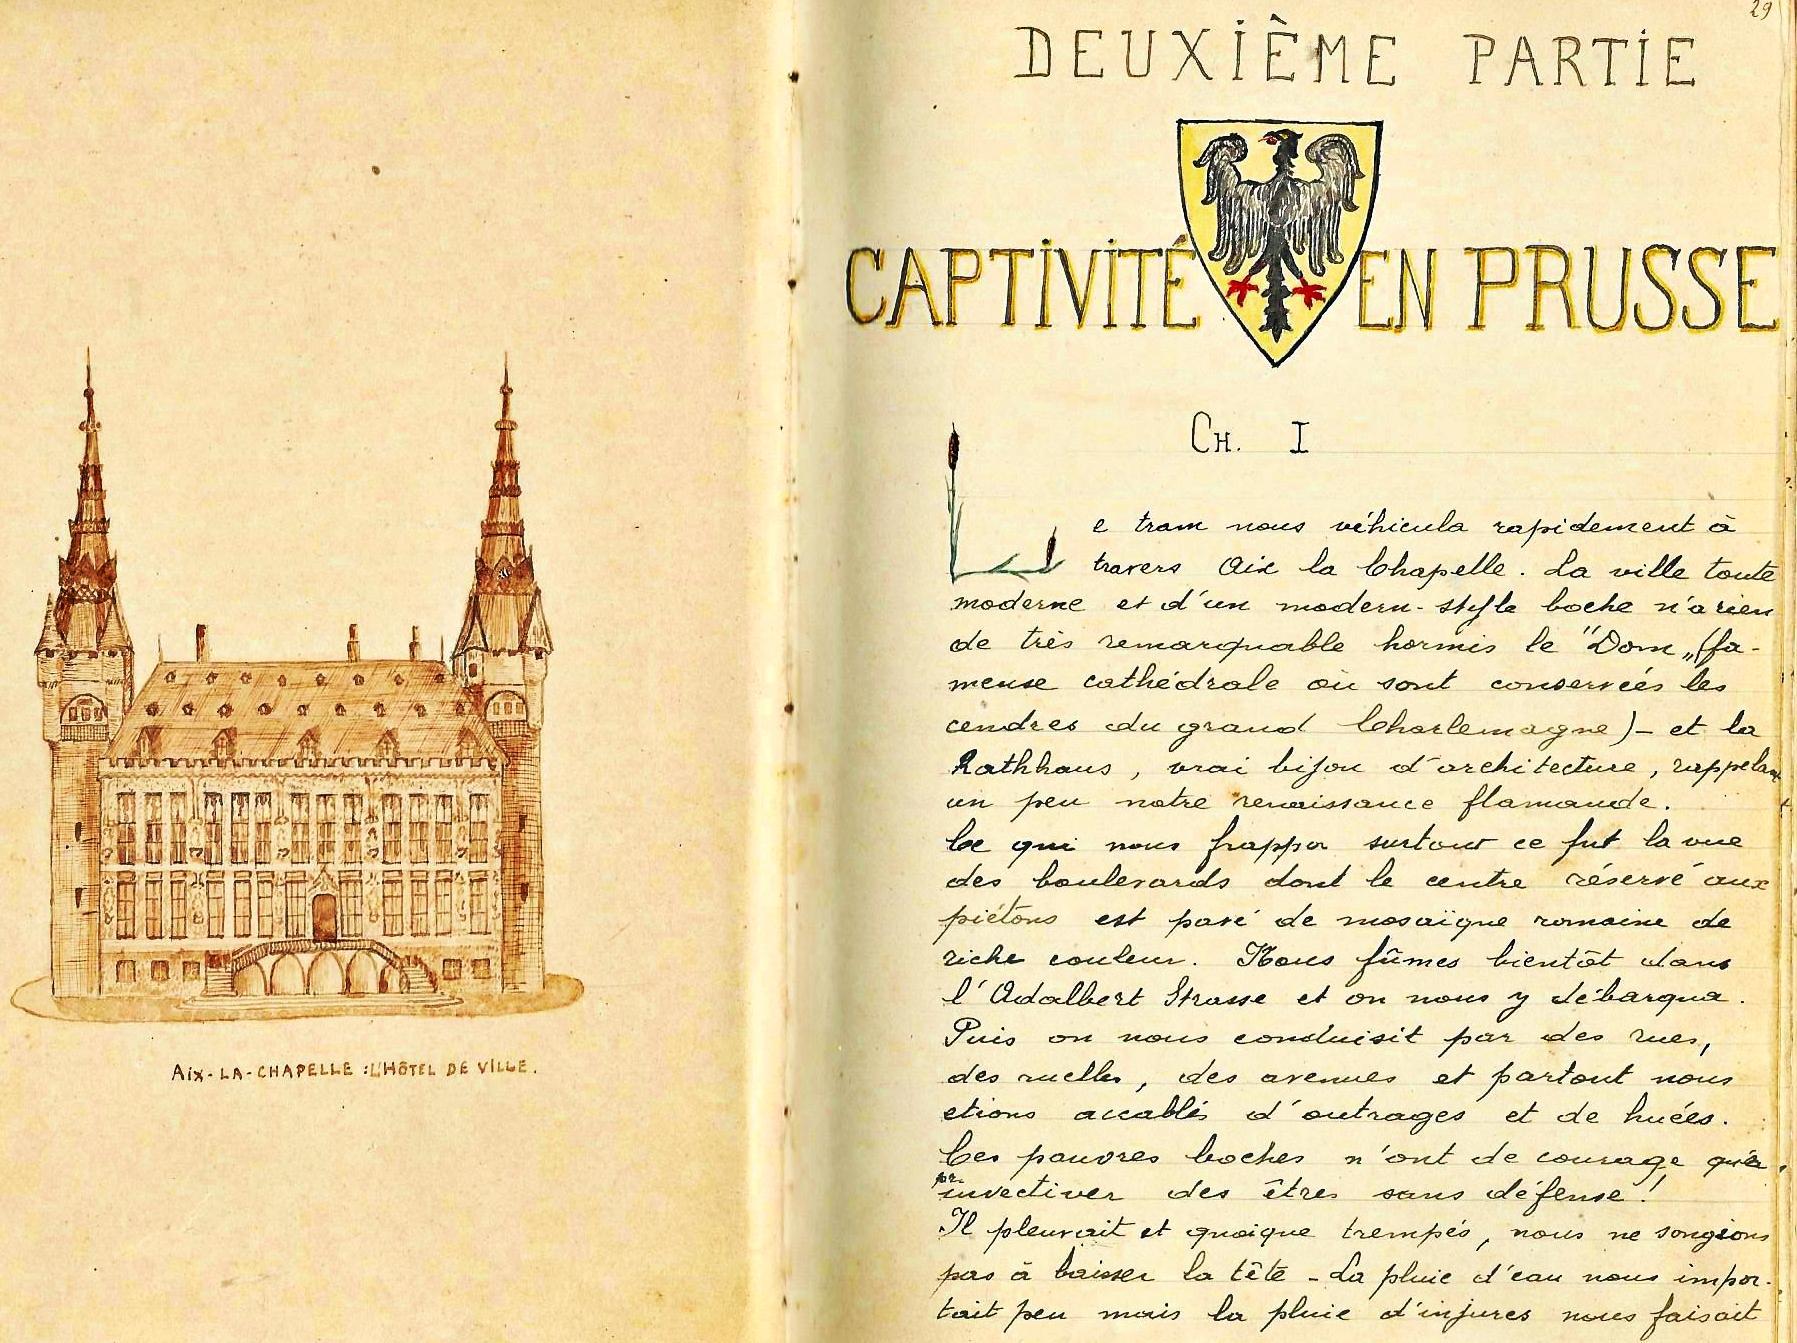 AIX-LA-CHAPELLE : L'HÔTEL DE VILLE.
29
DEUXIÈME PARTIE
CAPTIVITÉ EN PRUSSE
CH. I
Le tram nous véhicula rapidement à
travers Aix la Chapelle. La ville toute
moderne et d'un modern-style boche n'a rien
de très remarquable hormis le "Dom„ (fa-
meuse cathédrale où sont conservées les
cendres du grand Charlemagne) - et la
Rathhaus, vrai bijou d'architecture, rappelant
un peu notre renaissance flamande.
Ce qui nous frappa surtout ce fut la vue
des boulevards dont le centre réservé aux
piétons est pavé de mosaïque romaine de
riche couleur. Nous fûmes bientôt dans
l'Adalbert Strasse et on nous y débarqua.
Puis on nous conduisit par des rues,
des ruelles, des avenues et partout nous
etions accablés d'outrages et de huées.
Ces pauvres boches n'ont de courage qu'à
pr. invectiver des êtres sans défense !
Il pleuvait et quoique trempés, nous ne songions
pas à baisser la tête - La pluie d'eau nous impor-
tait peu mais la pluie d'injures nous faisait